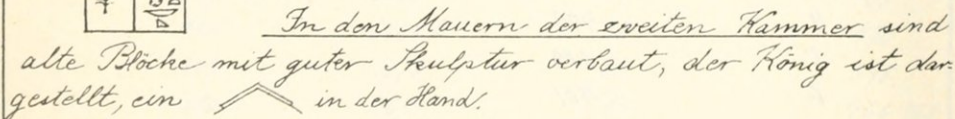 In den Mauern der zweiten Kammer sind
alte Blöcke mit guter Skulptur verbaut, der König ist dar-
gestellt, ein in der Hand.